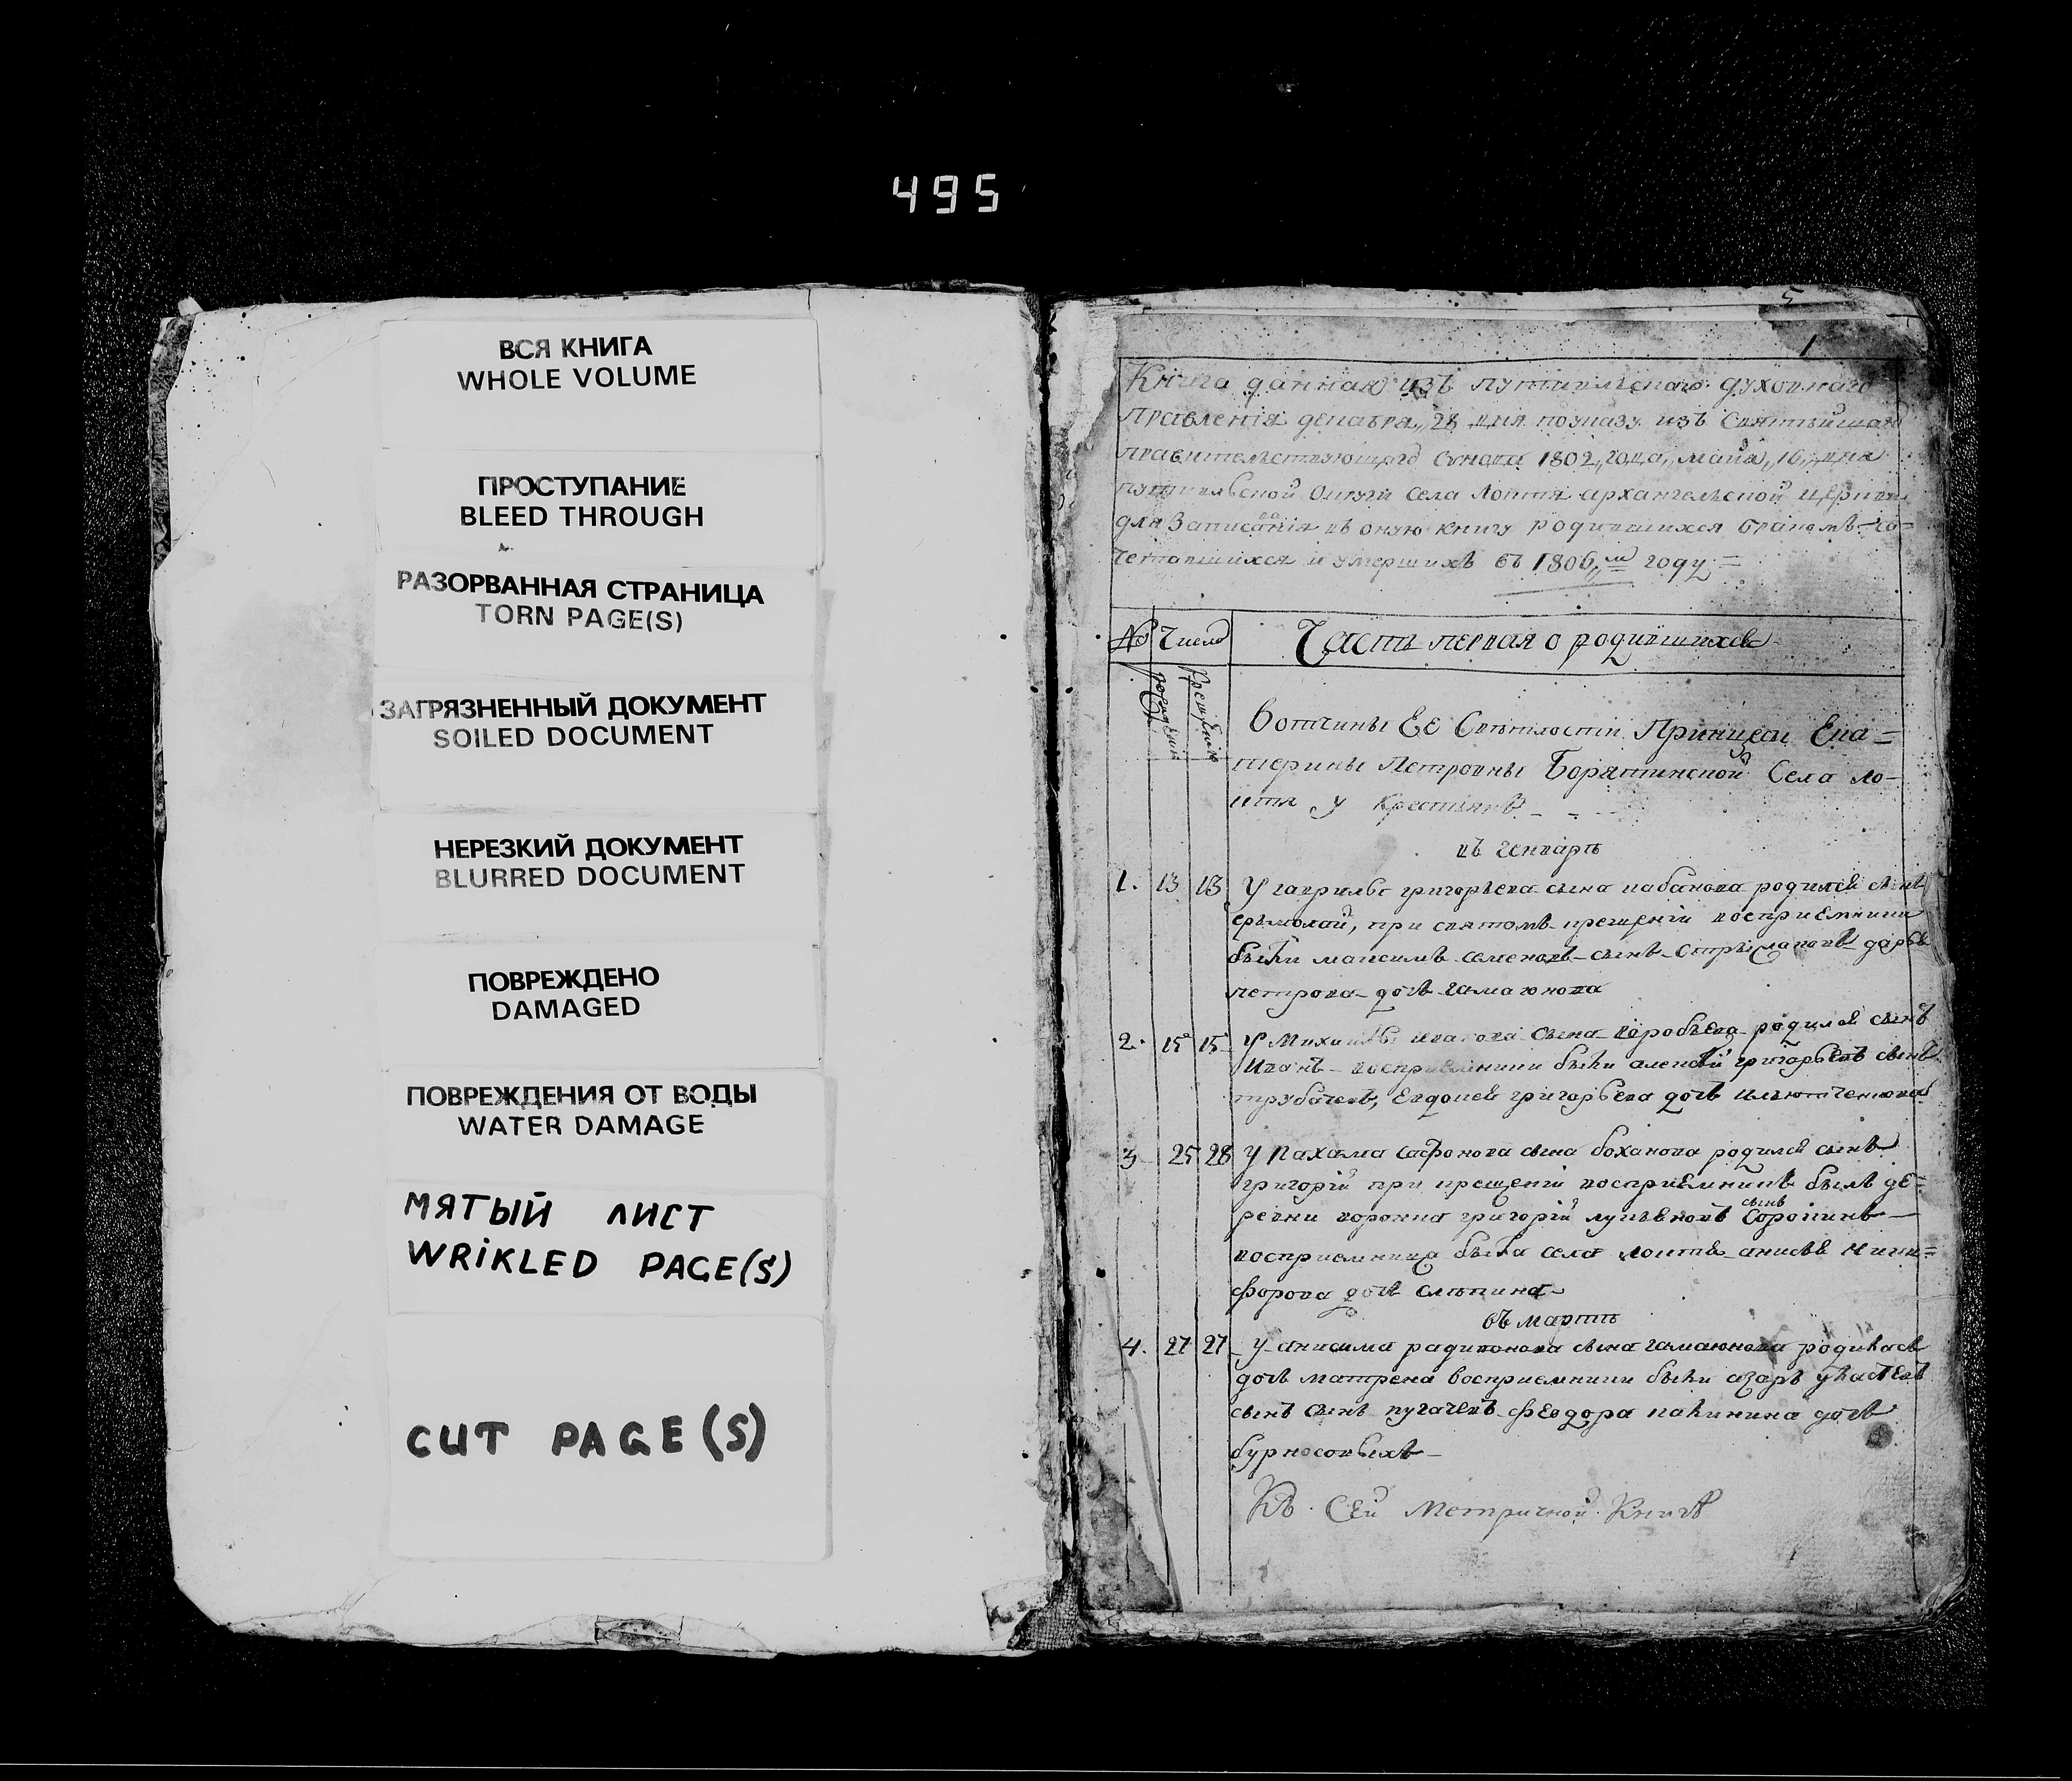 495
ВСЯ КНИГА
WHOLE VOLUME
ПРОСТУПАНИЕ
BLEED THROUGH
РАЗОРВАННАЯ СТРАНИЦА
TORN PAGE(S)
ЗАГРЯЗНЕННЫЙ ДОКУМЕНТ
SOILED DOCUMENT
НЕРЕЗКИЙ ДОКУМЕНТ
BLURRED DOCUMENT
ПОВРЕЖДЕНО
DAMAGED
ПОВРЕЖДЕНИЯ ОТ ВОДЫ
WATER DAMAGE
МЯТЫЙ ЛИСТ
WRiKLED PAGE(S)
CUT PAGE(S)
5
1
Книга данная изъ путивльскаго духовнаго
правленія декабря 28 дня по указу изъ Святѣйшаго
правительствующаго Сунода 1802 года, маія, 16, дня
путивльской округи села Локтя архангельской церкви
для Записанія въ оную книгу родившихся бракомъ-со=
четавшихся и умершихъ въ 1806,, м году =
№ Число Часть первая о родившихся
рожденія крещенія
Вотчины Ее Свѣтлости Принцеси Ека=
терины Петровны Борятинской Села ло-
ктя у Крестянъ
въ генварѣ
1. 13 13 У гаврилы григорьева сына кабанова родился сынъ
ермолай, при святомъ крещеніи восприемники
были максимъ семеновъ сынъ дарья
петрова дочь гамаюнова
2. 15 15 У Михаилы иванова сына воробьева родился сынъ
Иванъ восприемники были алексѣй григорьевъ сынъ
трубачевъ, Евдокея григорьева дочь
3 25 28 У Пахома сафонова сына боханова родился сынъ
григорій при крещеніи восприемникъ былъ де=
ревни ворожна григорій лукьяновъ сынъ Сорокинъ
восприемница была села локтя анисья ники=
форова дочь слѣпина
въ мартѣ
4. 27 27 У анисима радивонова сына гамаюнова родилась
дочь матрена восприемники были азаръ
сынъ сынъ пугачевъ феодора дочь
бурносовыхъ
Къ Сей Метричной Книгѣ